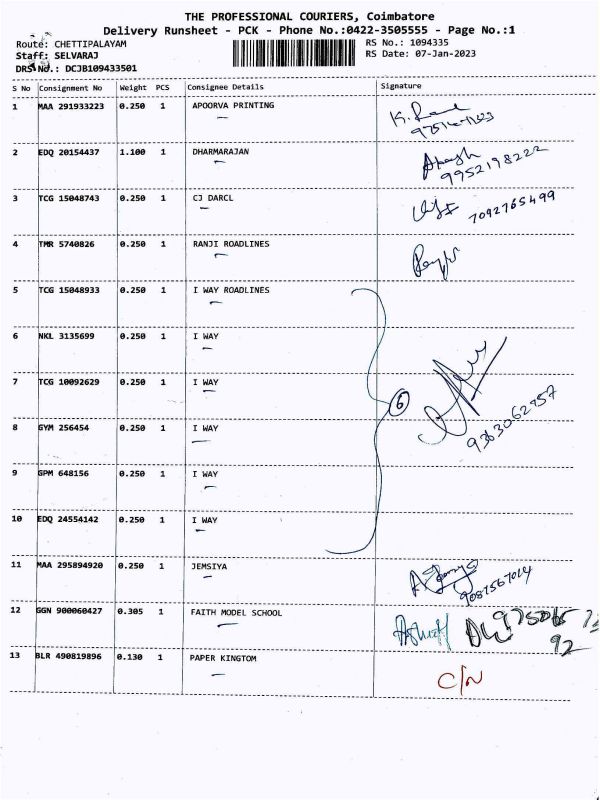 THE PROFESSIONAL COURIERS, Coimbatore
Delivery Runsheet - PCK - Phone No.:0422-3505555 - Page No.:1
Route: CHETTIPALAYAM RS No.: 1094335
Staff: SELVARAJ RS Date: 07-Jan-2023
DRS No.: DCJB109433501
S No Consignment No Weight PCS Consignee Details Signature
1 MAA 291933223 0.250 1 APOORVA PRINTING
2 EDQ 20154437 1.100 1 DHARMARAJAN
9952198222
3 TCG 15048743 0.250 1 CJ DARCL 7092765499
4 TMR 5740826 0.250 1 RANJI ROADLINES
5 TCG 15048933 0.250 1 I WAY ROADLINES
6 NKL 3135699 0.250 1 I WAY
7 TCG 10092629 0.250 1 I WAY
6
8 GYM 256454 0.250 1 I WAY 9363062857
9 GPM 648156 0.250 1 I WAY
10 EDQ 24554142 0.250 1 I WAY
11 MAA 295894920 0.250 1 JEMSIYA
9087567014
12 GGN 900060427 0.305 1 FAITH MODEL SCHOOL
92
13 BLR 490819896 0.130 1 PAPER KINGTOM C/N